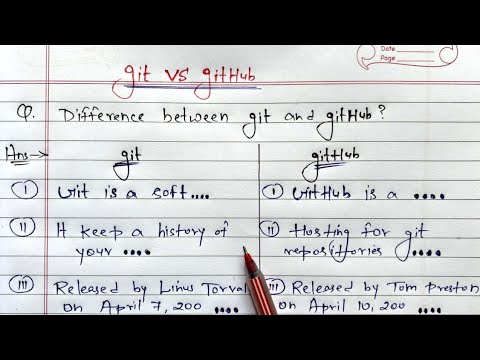 Date
Page
git vs gitHub
Q. Difference between git and gitHub?
Ans→ git gitHub
(I) Git is a soft.... (I) GitHub is a ....
(II) It keep a history of (II) Hosting for git
your .... reposittories ....
(III) Released by Linus Torval (III) Released by Tom Preston
on April 7, 200 .... on April 10, 200 ....